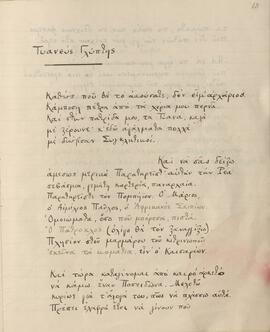 Τυανεύς Γλύπτης
Καθώς ποῦ θὰ τὸ ἀκούσατε, δὲν εἶμ' ἀρχάριος.
Κάμποση πέτρα ἀπὸ τὰ χέρια μου περνᾶ.
Καὶ στὴν πατρίδα μου, τὰ Τύανα, καλὰ
μὲ ξέρουνε· κ' ἐδῶ ἀγάλματα πολλὰ
μὲ Συγκλητικοί.
Καὶ νὰ σᾶς δείξω
ἀμέσως μερικά. Παρατηρεῖστ' αὐτὴν τὴν Ρέα·
σεβάσμια, γεμάτη καρτερία, παναρχαία.
Παρατηρεῖστε τὸν Πομπήϊον. Ὁ Μάριος,
ὁ Αἰμίλιος Παῦλος, ὁ Ἀφρικανὸς Σκιπίων.
Ὁμοιώματα, ὅσο ποῦ μπόρεσα, πιστά.
Ὁ Πάτροκλος (ὀλίγο θὰ τὸν ξαναγγίξω).
Πλησίον στοῦ μαρμάρου τοῦ κιτρινωποῦ
ἐκεῖνα τὰ κομάτια, εἶν' ὁ Καισαρίων.
Καὶ τώρα καταγίνομαι ἀπὸ καιρὸ ἀρκετὸ
νὰ κάμω ἕναν Ποσειδῶνα. Μελετῶ
κυρίως γιὰ τ' ἄλογά του, πῶς νὰ πλάσσω αὐτά.
Πρέπει ἐλαφρὰ ἔτσι νὰ γίνουν ποῦ